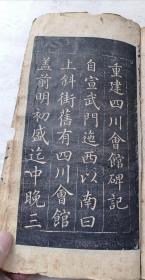 重建四川會館碑記
自宣武門迤西以南曰
上斜街舊有四川會館
蓋前明初盛迄中晚三